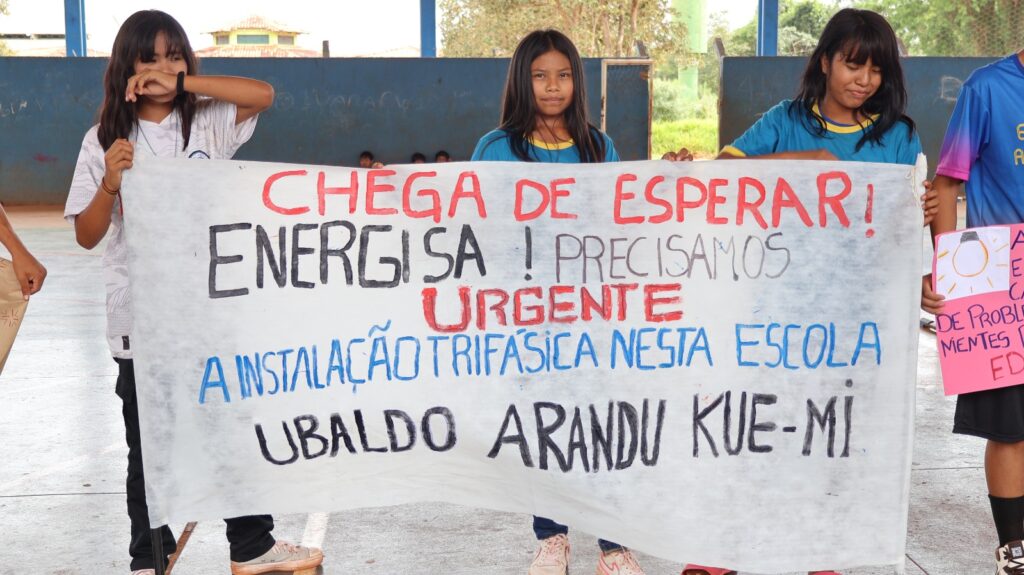 CHEGA DE ESPERAR!
ENERGISA! PRECISAMOS
URGENTE
A INSTALAÇÃO TRIFÁSICA NESTA ESCOLA
UBALDO ARANDU KUE-MI
DE PROBLE
MENTES
ED